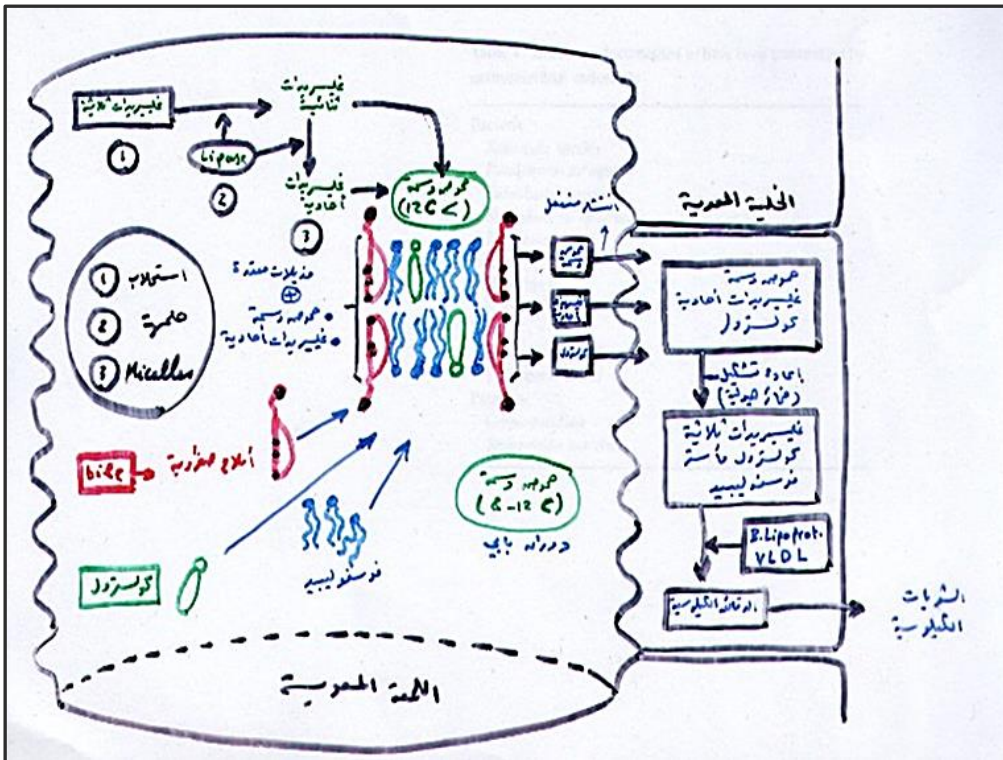 غليسريدات ثلاثية
غليسريدات
ثنائية
lipase
غليسريدات
أحادية
حموض دسمة
(12C <)
1
2
3
1 استحلاب
2 حلمهة
3 Micelles
مذيلات معقدة
+
• حموض دسمة
• غليسريدات أحادية
bile
أملاح صفراوية
كولسترول
فوسفوليبيد
حموض دسمة
(6-12 C)
دوران بابي
اللمعة المعوية
انتشار منفعل
حموض
دسمة
غليسريدات
أحادية
كولسترول
الخلية المعوية
حموض دسمة
غليسريدات أحادية
كولسترول
إعادة تشكل
غليسريدات ثلاثية
كولسترول مأستر
فوسفوليبيد
B. Lipoprot.
VLDL
الدقائق الكيلوسية
الكيلوسية